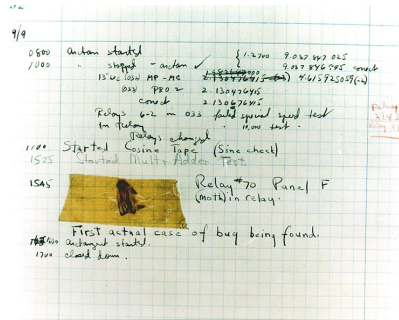 9/9
0800 antan started
1000 " stopped - antan ✓ { 1.2700 9.037 847 025
9.037 846 995 conect
13"uc (032) MP-MC 2.130476415 4.615925059(-2)
(033) PRO.2 2.130476415
conect 2.130676415
Relays 6-2 in 033 failed special speed test
in Relay " 10,000 test.
Relays changed
1100 Started Cosine Tape (Sine check)
1525 Started Mult+Adder Test.
1545 Relay #70 Panel F
(moth) in relay.
First actual case of bug being found.
antangent started.
1700 closed down.